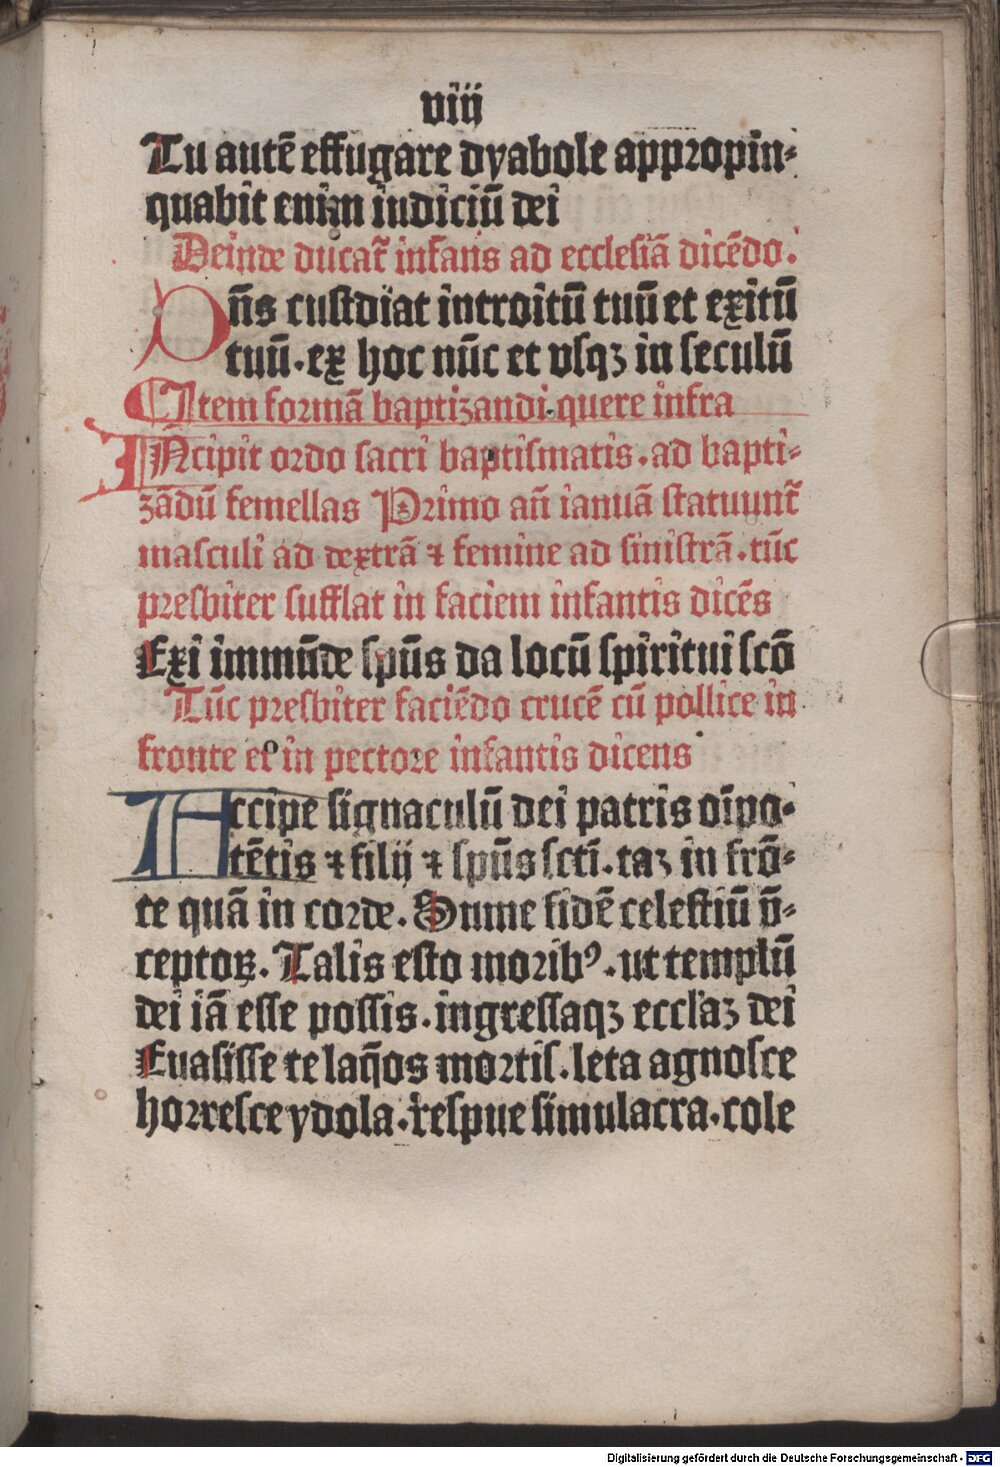 viij
Tu autē effugare dyabole appropin-
quabit enim iudiciū dei
Deinde ducat᷑ infans ad ecclesiā dicēdo.
Dn̄s custdiat introitū tuū et exitū
tuū. ex hoc nūc et vsqꝫ in seculū
Item formā baptizandi. quere infra
INcipit ordo sacri baptismatis. ad bapti-
zādū femellas Primo an̄ ianuā statuunt᷑
masculi ad dextrā ⁊ femine ad sinistrā. tūc
presbiter sufflat in faciem infantis dicēs
Exi immūde spūs da locū spiritui scō
Tūc presbiter faciēdo crucē cū pollice in
fronte et in pectore infantis dicens
Accipe signaculū dei patris oīpo-
tētis ⁊ filij ⁊ spūs sctī. taꝫ in frō-
te quā in corde. Sume fidē celestiū p̄-
ceptoꝝ. Talis esto moribꝰ. ut templū
dei iā esse possis. ingressaqꝫ eccl'aꝫ dei
Euasisse te laq̄os mortis. leta agnosce
horresce ydola. respue simulacra. cole
Digitalisierung gefördert durch die Deutsche Forschungsgemeinschaft - DFG